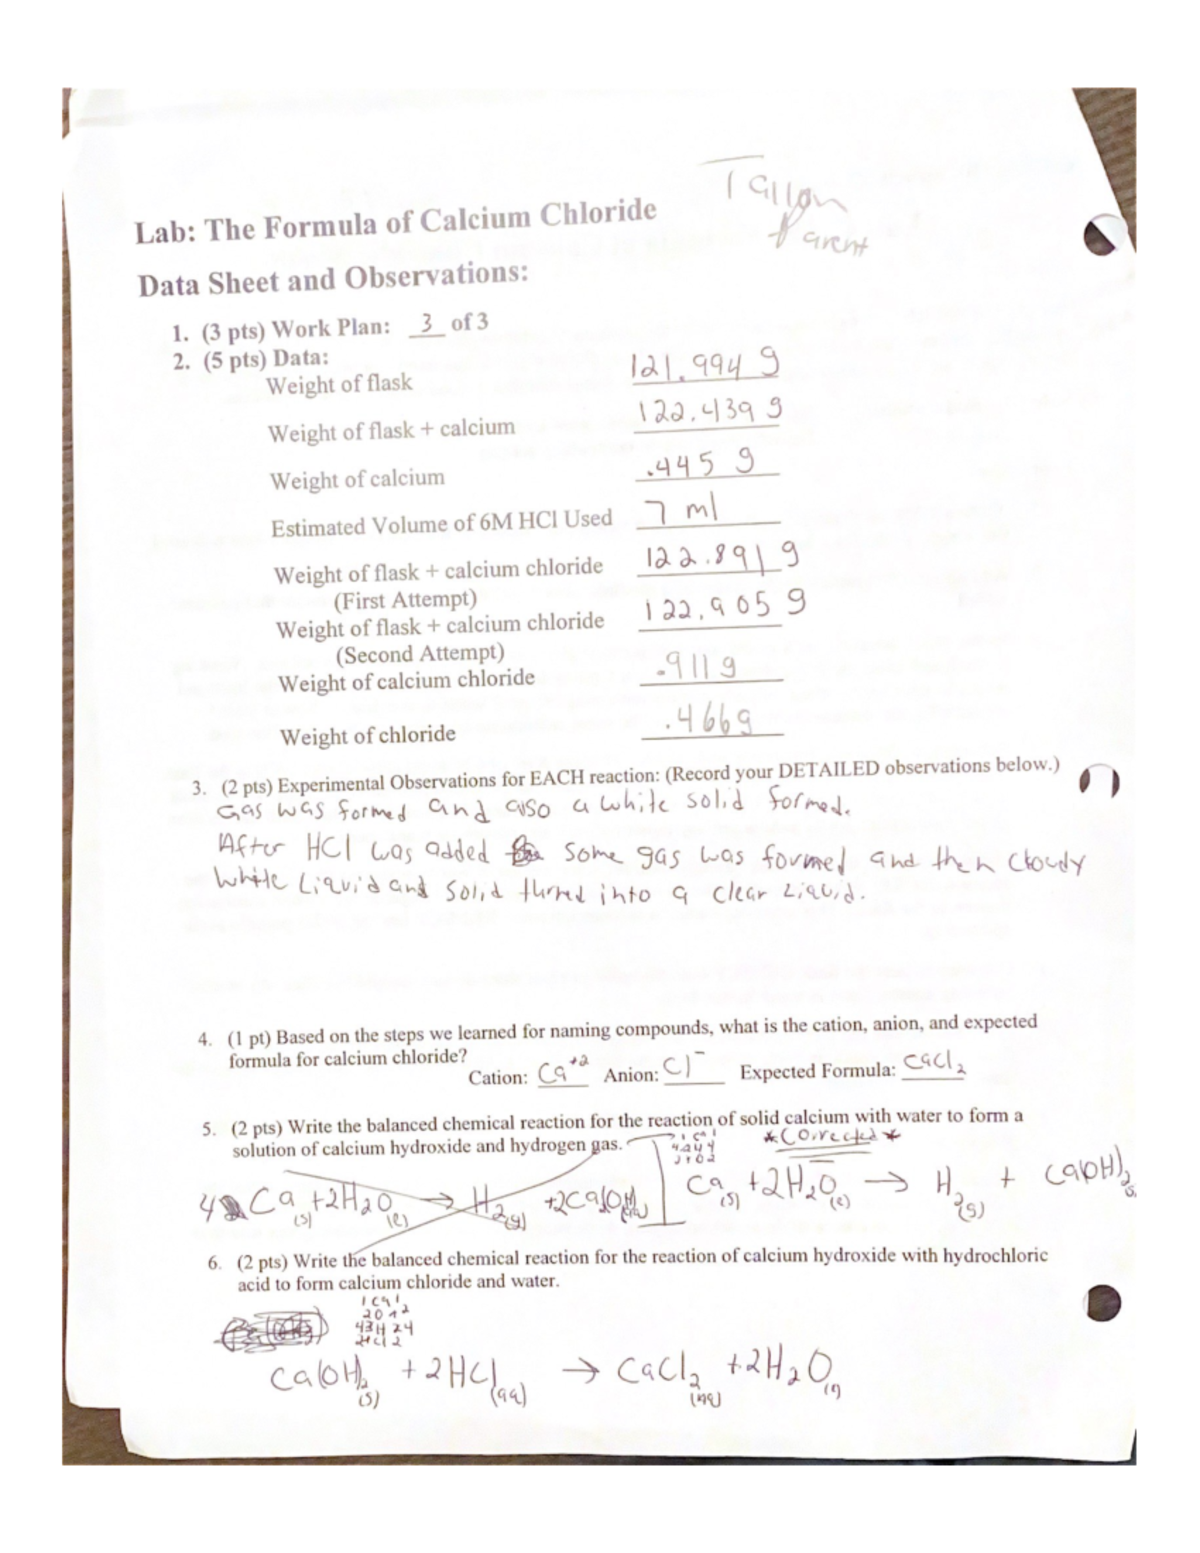 Tallon
Parent
Lab: The Formula of Calcium Chloride
Data Sheet and Observations:
1. (3 pts) Work Plan: 3 of 3
2. (5 pts) Data:
Weight of flask 121.994 g
Weight of flask + calcium 122.439 g
Weight of calcium .445 g
Estimated Volume of 6M HCl Used 7 ml
Weight of flask + calcium chloride 122.891 g
(First Attempt)
Weight of flask + calcium chloride 122.905 g
(Second Attempt)
Weight of calcium chloride .911 g
Weight of chloride .466g
3. (2 pts) Experimental Observations for EACH reaction: (Record your DETAILED observations below.)
Gas was formed and also a white solid formed.
After HCl was added some gas was formed and then cloudy
white Liquid and solid turned into a clear Liquid.
4. (1 pt) Based on the steps we learned for naming compounds, what is the cation, anion, and expected
formula for calcium chloride?
Cation: Ca+2 Anion: Cl- Expected Formula: CaCl2
5. (2 pts) Write the balanced chemical reaction for the reaction of solid calcium with water to form a
solution of calcium hydroxide and hydrogen gas.
*Corrected*
4 Ca(s) +2H2O(l) → H2(g) +2Ca(OH)
Ca(s) +2H2O(l) → H2(g) + Ca(OH)2(s)
6. (2 pts) Write the balanced chemical reaction for the reaction of calcium hydroxide with hydrochloric
acid to form calcium chloride and water.
1 Ca 1
2 O 2
Ca(OH)2(s) + 2HCl(aq) → CaCl2(aq) +2H2O(l)